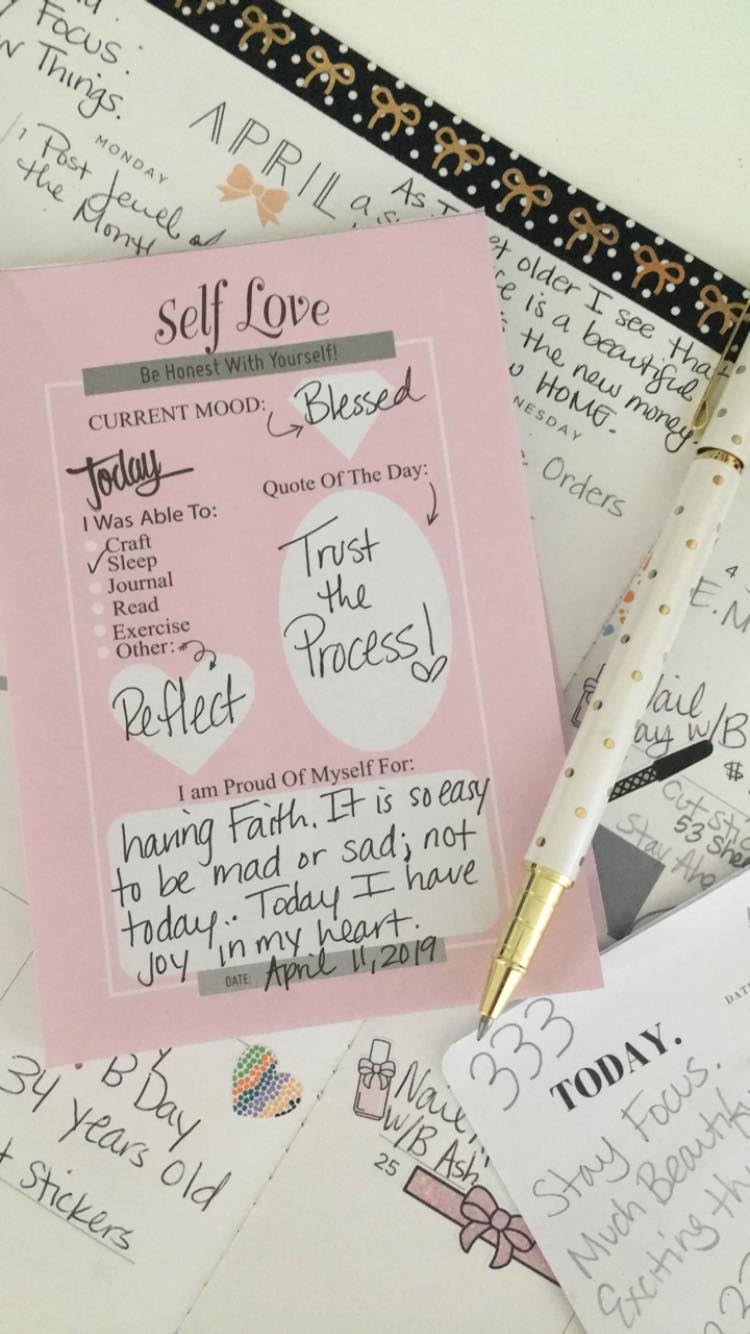 Focus.
Things.
APRIL
MONDAY
1 Post Jewel of
the Month
As I get older I see that
is a beautiful
the new money.
HOME.
Orders
4
E.M
Self Love
Be Honest With Yourself!
CURRENT MOOD:
Blessed
Today
I Was Able To:
Craft
Sleep
Journal
Read
Exercise
Other:
Reflect
Quote Of The Day:
Trust
the
Process!
I am Proud Of Myself For:
having Faith. It is so easy
to be mad or sad; not
today.. Today I have
Joy in my heart.
DATE: April 11, 2019
w/B
$
Cut
53
Stay
B Day
34 years old
Stickers
Nail
w/B Ash
25
333
TODAY.
Stay Focus.
Much
Exciting